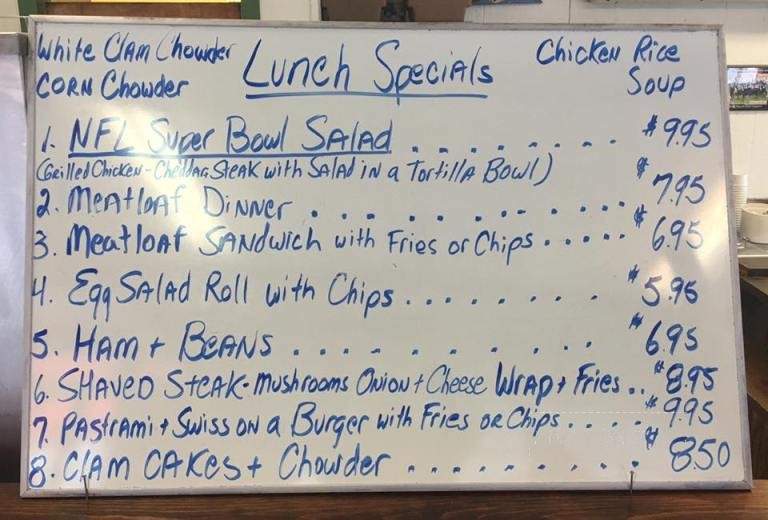 White Clam Chowder
CORN Chowder
Lunch Specials
Chicken Rice
Soup
1. NFL Super Bowl Salad . . . . . . . . $9.95
(Grilled Chicken - Cheddar Steak with Salad in a Tortilla Bowl)
2. Meatloaf Dinner . . . . . . . . . . . $7.95
3. Meatloaf Sandwich with Fries or Chips . . . . . $6.95
4. Egg Salad Roll with Chips . . . . . . . . $5.95
5. Ham + Beans . . . . . . . . . . . $6.95
6. Shaved Steak - Mushrooms Onion + Cheese Wrap + Fries . . $8.95
7. Pastrami + Swiss on a Burger with Fries or Chips . . . . $9.95
8. Clam Cakes + Chowder . . . . . . . . . $8.50